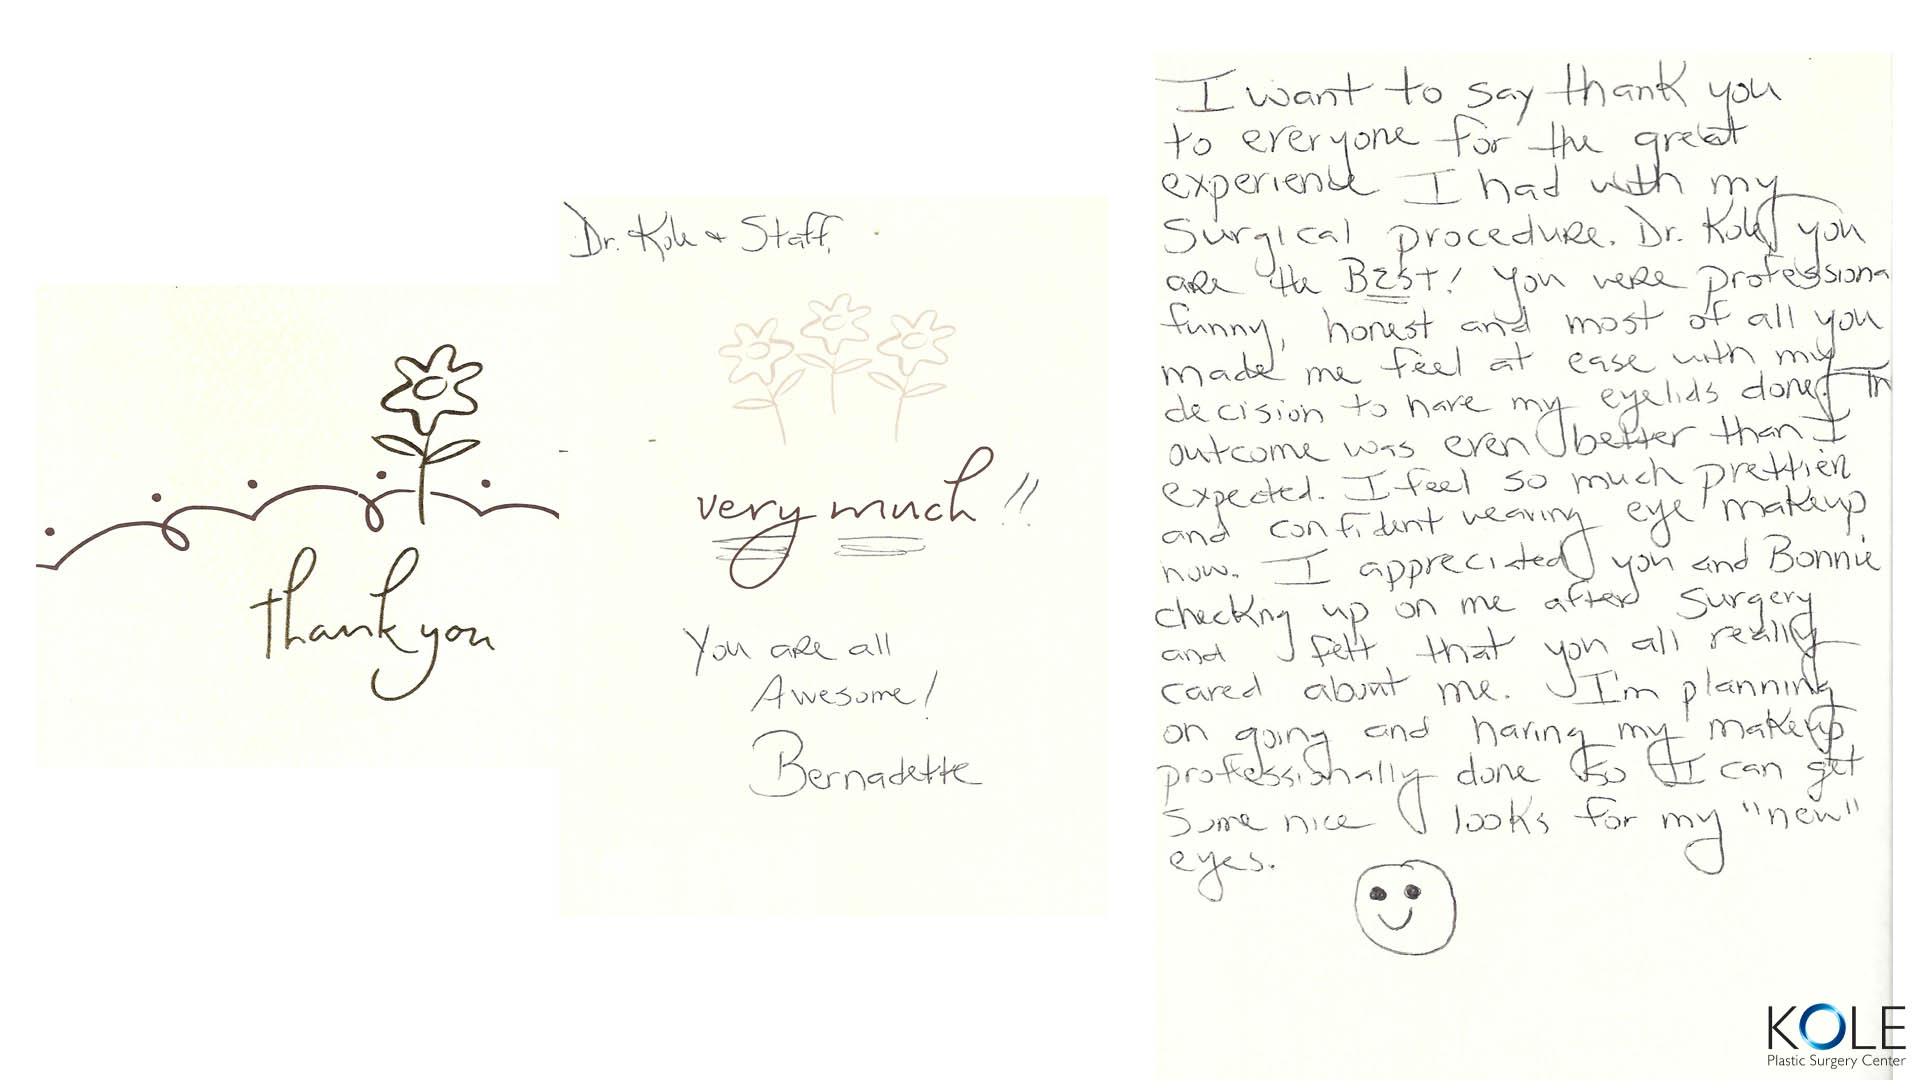 thank you
Dr. Kole & Staff,
very much !!
You are all
Awesome!
Bernadette
I want to say thank you
to everyone for the great
experience I had with my
Surgical procedure. Dr. Kole, you
are the BEST! You were professiona
funny, honest and most of all you
made me feel at ease with my
decision to have my eyelids done. Th
outcome was even better than I
expected. I feel so much prettier
and confident wearing eye makeup
now. I appreciated you and Bonnie
checkng up on me after surgery
and felt that you all really
cared about me. I'm planning
on going and having my makeup
professionally done so I can get
some nice looks for my "new"
eyes.
KOLE
Plastic Surgery Center